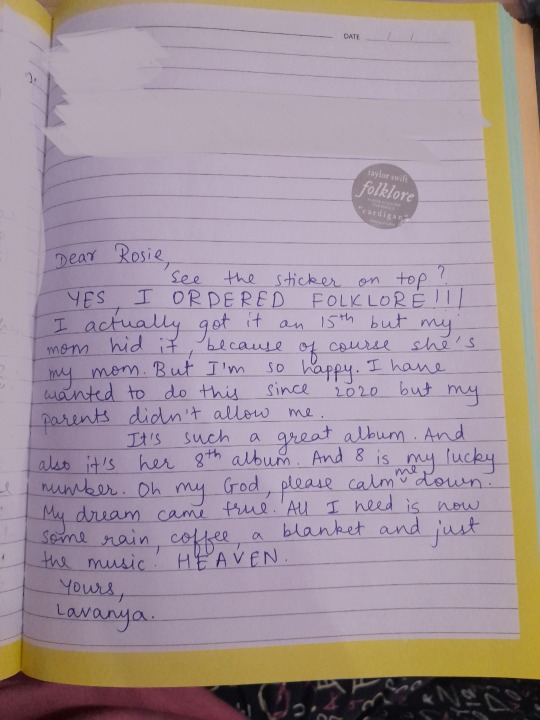 DATE / /
taylor swift
folklore
"cardigan"
Dear Rosie,
See the sticker on top?
YES, I ORDERED FOLKLORE!!!
I actually got it an 15th but my
mom hid it, because of course she's
my mom. But I'm so happy. I have
wanted to do this since 2020 but my
parents didn't allow me.
It's such a great album. And
also it's her 8th album. And 8 is my lucky
number. Oh my God, please calm me down.
My dream came true. All I need is now
some rain, coffee, a blanket and just
the music. HEAVEN.
Yours,
Lavanya.